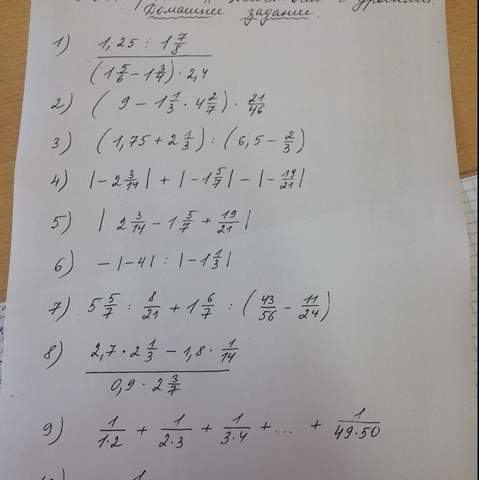 действия с дробями.
Домашнее задание.
1) 1,25 : 1 7/8
(1 5/6 - 1 3/4) · 2,4
2) (9 - 1 1/3 · 4 2/7) · 21/46
3) (1,75 + 2 1/3) : (6,5 - 2/3)
4) |-2 3/14| + |-1 5/7| - |-19/21|
5) |2 3/14 - 1 5/7 + 19/21|
6) -|-4| : |-1 1/3|
7) 5 5/7 : 8/21 + 1 6/7 : (43/56 - 11/24)
8) 2,7 · 2 1/3 - 1,8 · 1/14
0,9 · 2 3/7
9) 1/1·2 + 1/2·3 + 1/3·4 + ... + 1/49·50